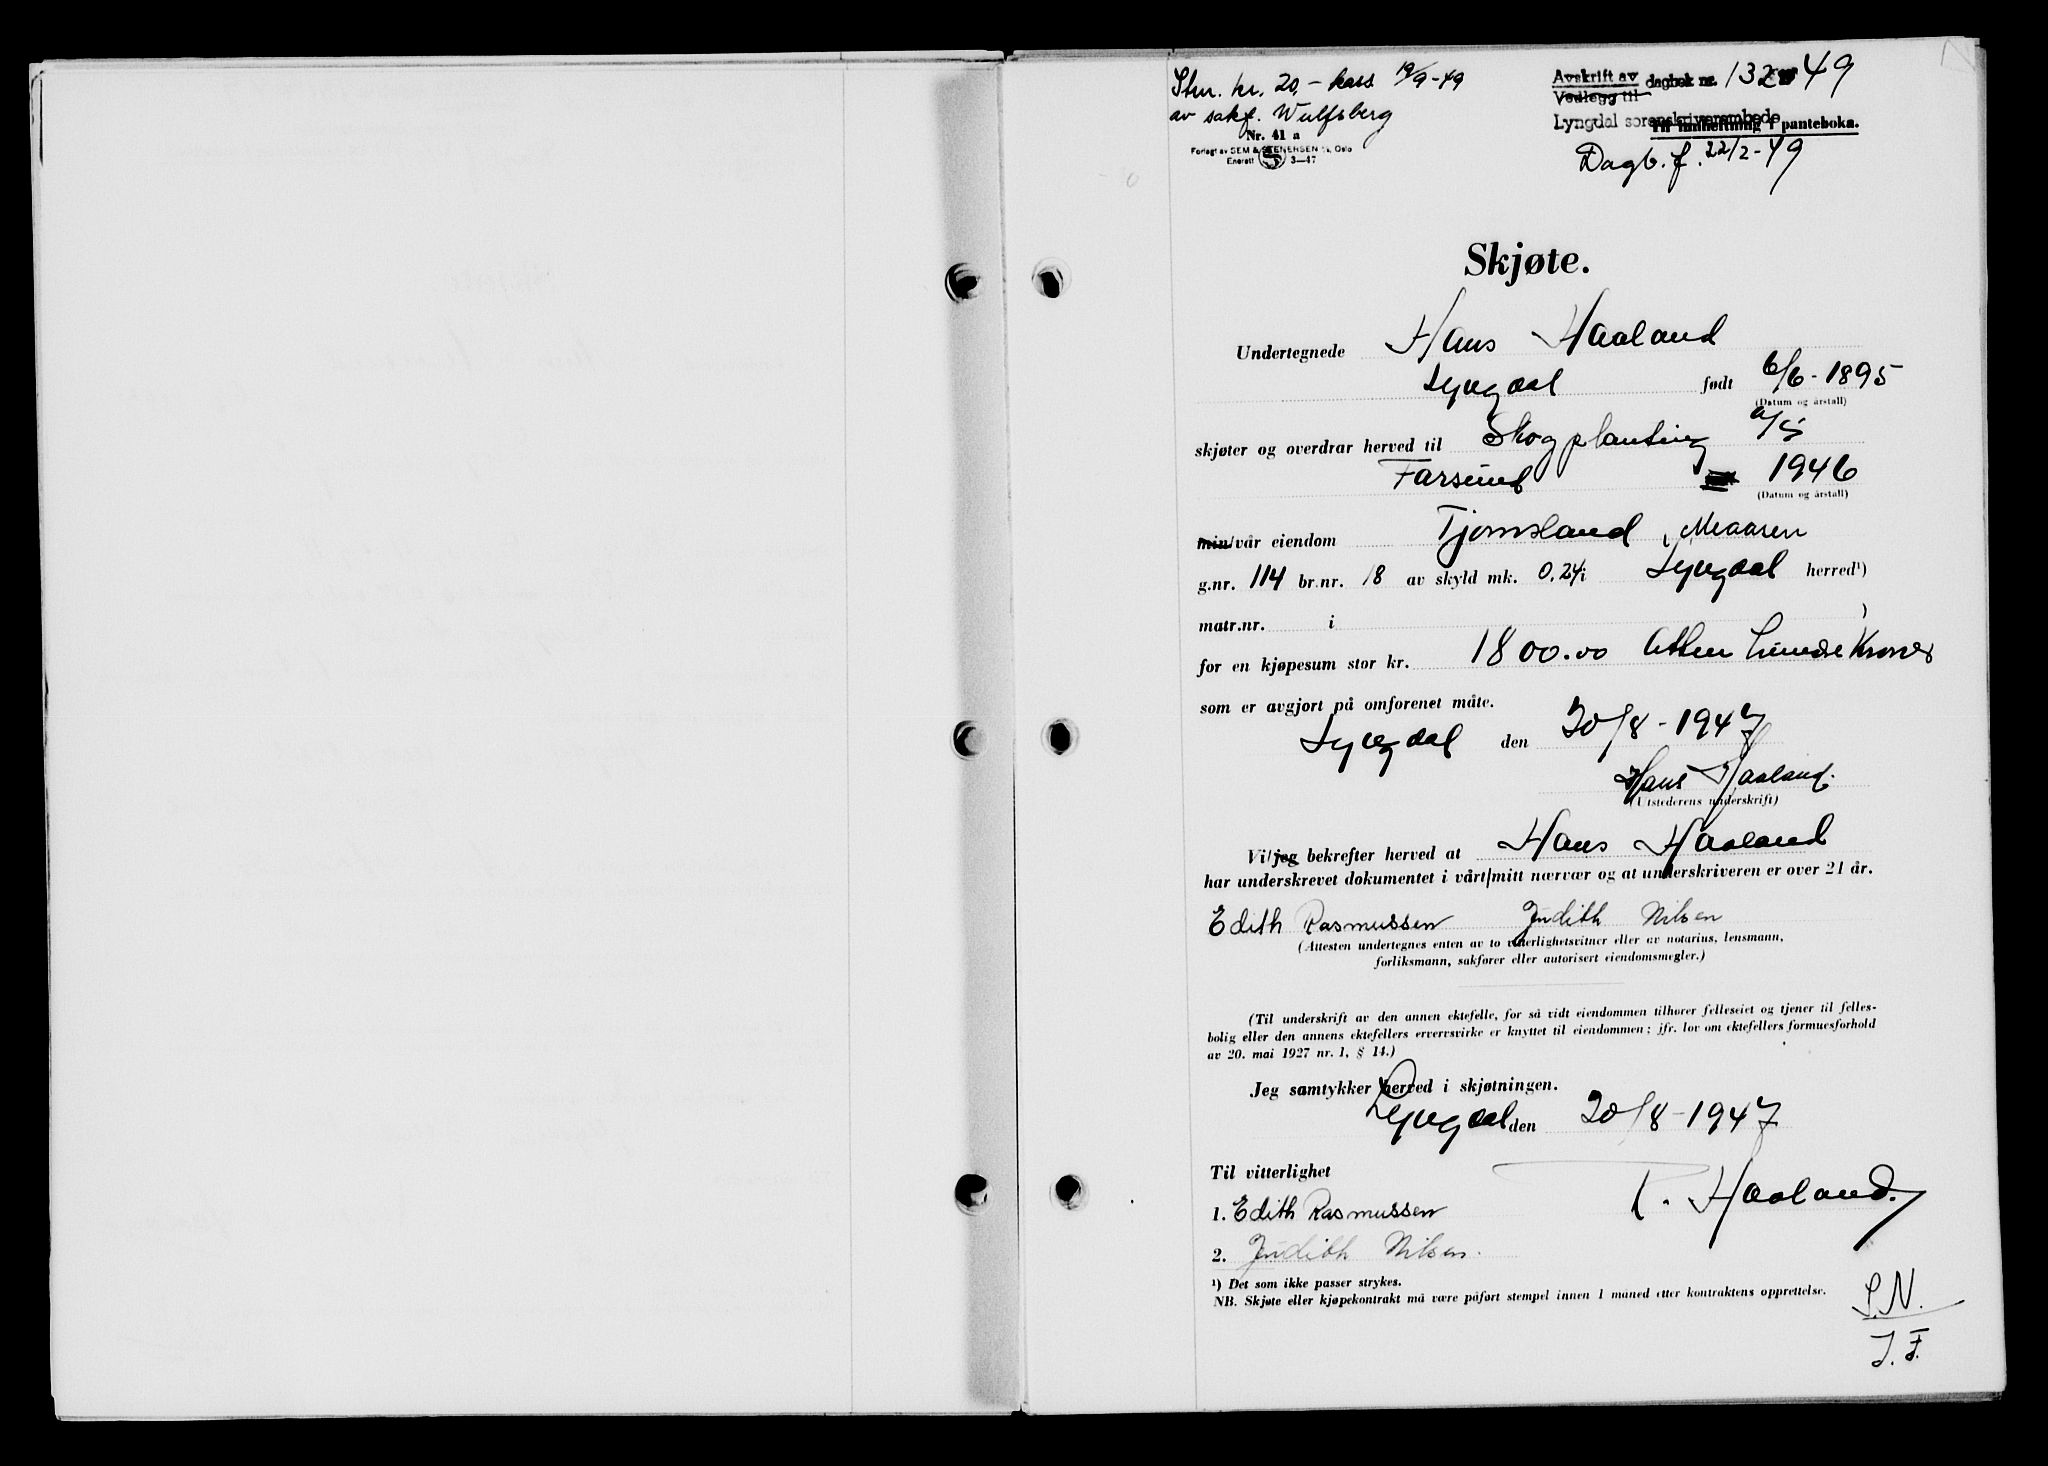 Stm. kr. 20,- kass. 19/9-49
av sakf. Wulfsberg
Nr. 41 a
Forlagt av SEM & STENERSEN A/S, Oslo
Enerett 3—47
Avskrift av
Vedlegg til dagbok nr. 132 49
Lyngdal sorenskriverembede
Til innheftning i panteboka.
Dagb. f. 22/2-49
Skjøte.
Undertegnede Hans Haaland
Lyngdal født 6/6-1895
(Datum og årstall)
skjøter og overdrar herved til Skogplanting a/s
Farsund 1946
(Datum og årstall)
min/vår eiendom Tjomsland, Meaaren
g.nr. 114 br.nr. 18 av skyld mk. 0,24 i Lyngdal herred¹)
matr.nr. i
for en kjøpesum stor kr. 1800.00 Atten hundre Kroner
som er avgjort på omforenet måte.
Lyngdal den 20/8-1947
Hans Haaland.
(Utstederens underskrift)
Vi/jeg bekrefter herved at Hans Haaland
har underskrevet dokumentet i vårt/mitt nærvær og at underskriveren er over 21 år.
Edith Rasmussen Judith Nilsen
(Attesten undertegnes enten av to vitterlighetsvitner eller av notarius, lensmann,
forliksmann, sakfører eller autorisert eiendomsmegler.)
(Til underskrift av den annen ektefelle, for så vidt eiendommen tilhører felleseiet og tjener til felles-
bolig eller den annens ektefellers ervervsvirke er knyttet til eiendommen; jfr. lov om ektefellers formuesforhold
av 20. mai 1927 nr. 1, § 14.)
Jeg samtykker herved i skjøtningen.
Lyngdal den 20/8-1947
Til vitterlighet
T. Haaland.
1. Edith Rasmussen
2. Judith Nilsen.
¹) Det som ikke passer strykes.
NB. Skjøte eller kjøpekontrakt må være påført stempel innen 1 måned etter kontraktens opprettelse.
S.N.
J.F.